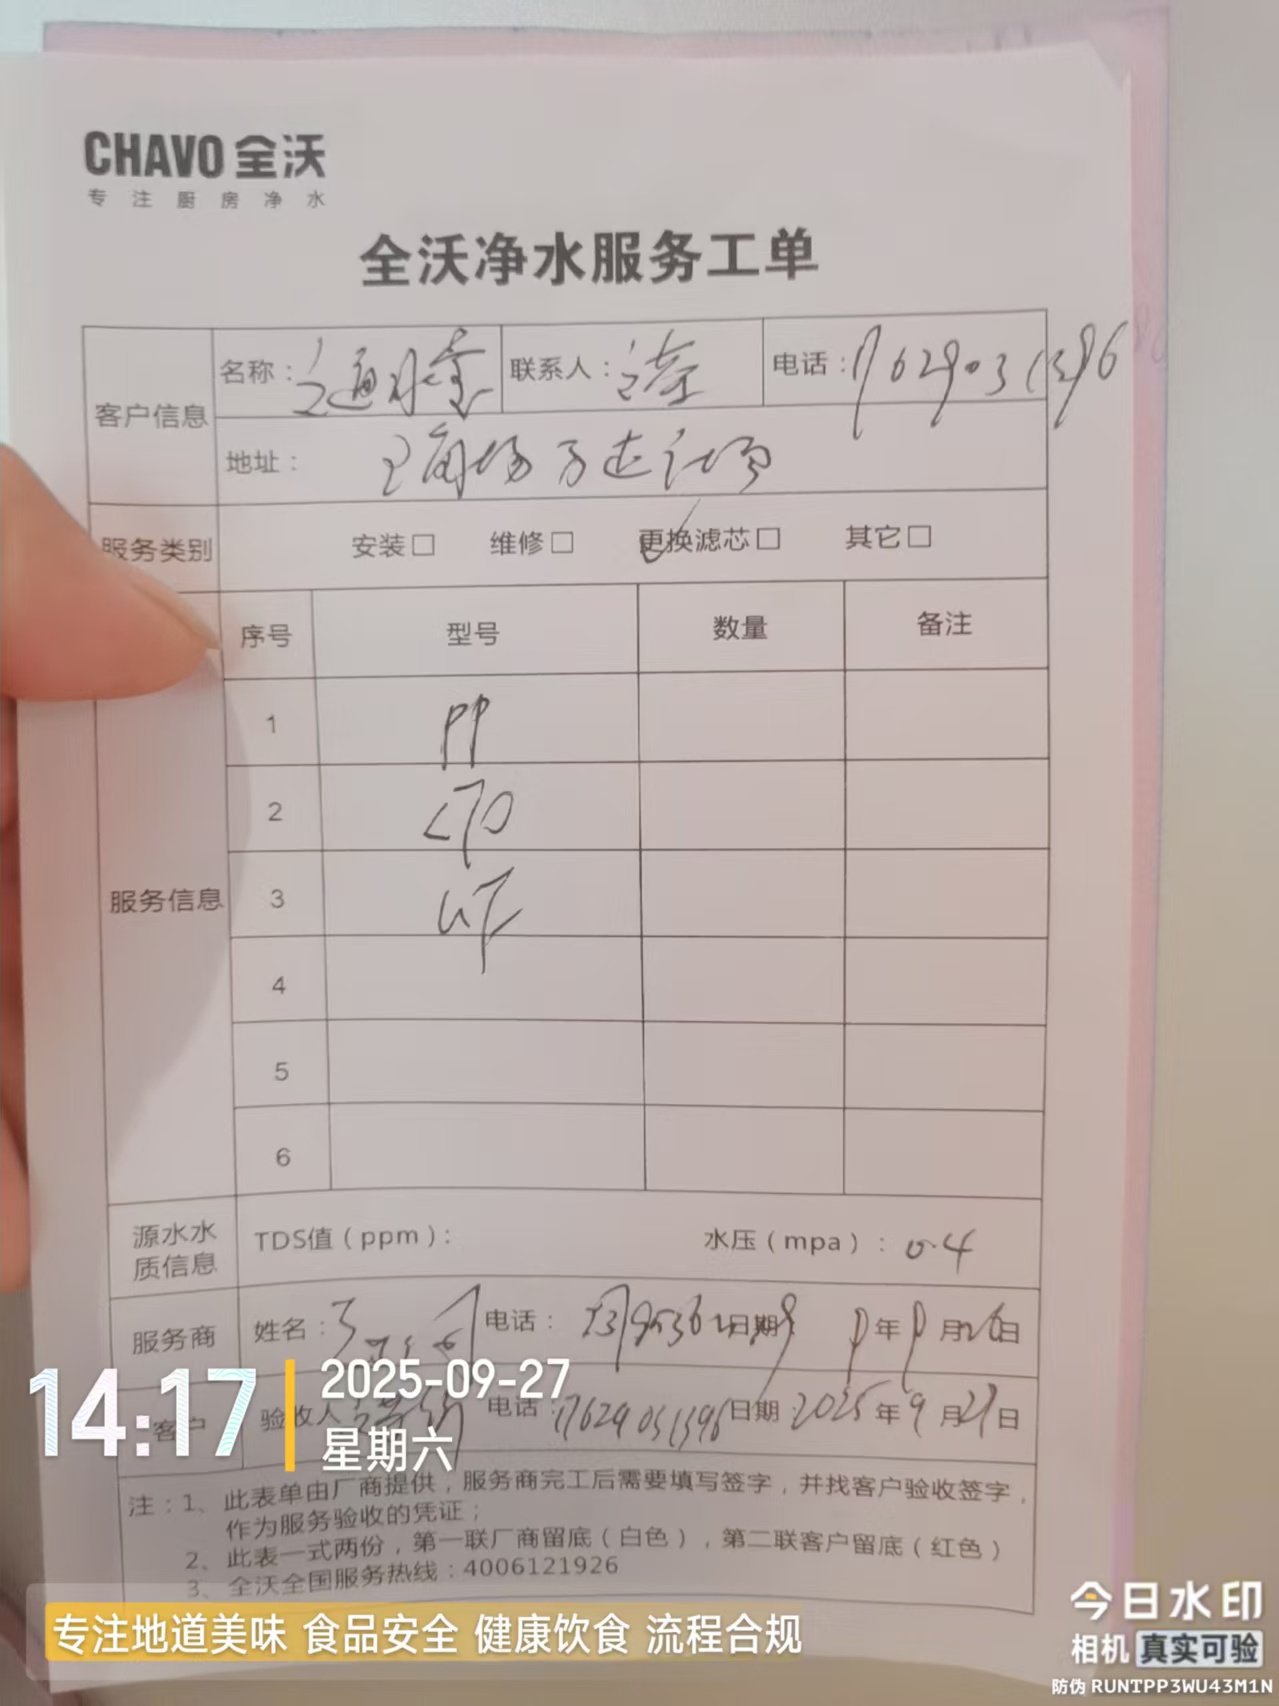 CHAVO 全沃
专注厨房净水
全沃净水服务工单
客户信息
名称：
联系人：
电话：17629031396
地址：
服务类别
安装□ 维修□ 更换滤芯□ 其它□
服务信息
序号 型号 数量 备注
1 PP
2 CTO
3 UF
4
5
6
源水水质信息
TDS值（ppm）： 水压（mpa）：0.4
服务商 姓名： 电话： 日期： 年9月26日
客户 验收人 电话：17629031396 日期：2025年9月27日
注：1、此表单由厂商提供，服务商完工后需要填写签字，并找客户验收签字，
作为服务验收的凭证；
2、此表一式两份，第一联厂商留底（白色），第二联客户留底（红色）
3、全沃全国服务热线：4006121926
14:17
2025-09-27
星期六
专注地道美味 食品安全 健康饮食 流程合规
今日水印
相机 真实可验
防伪 RUNTPP3WU43M1N